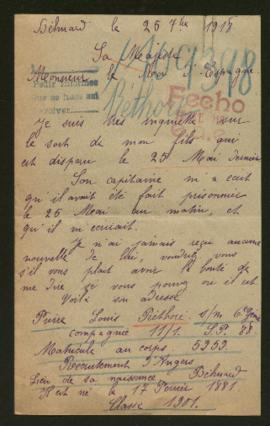 Béhuard le 25 7bre 1918
Sa Majesté
Monsieur le Roi d'Espagne
Pedir informes
Fecho
Béthoré
Je suis très inquiette sur
le sort de mon fils qui
est disparu le 25 Mai dernier
Son capitaine m'a écrit
qu'il avait été fait prisonnier
le 25 Mai au matin, et
qu'il m'écrirait.
Je n'ai jamais reçu aucune
nouvelle de lui, voudrez vous
s'il vous plait avoir la bonté de
me dire si vous pouvez où il est
Voilà son adresse
Louis Béthoré s/m 6e Génie
compagnie 11/1. S.P. 88
Matricule au corps 5253.
Recrutement d'Angers
Lieu de sa naissance Béhuard
Il est né le 17 Février 1881
Classe 1901.